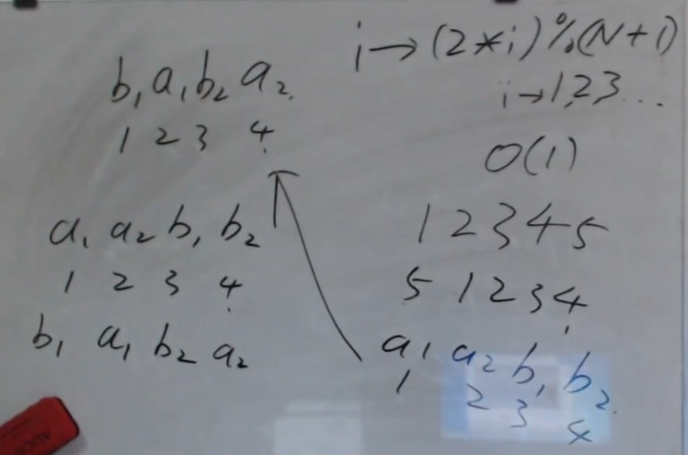 b₁ a₁ b₂ a₂
1 2 3 4
a₁ a₂ b₁ b₂
1 2 3 4
b₁ a₁ b₂ a₂
i→(2*i)%(N+1)
i→1,2,3...
O(1)
1 2 3 4 5
5 1 2 3 4
a₁ a₂ b₁ b₂
1 2 3 4